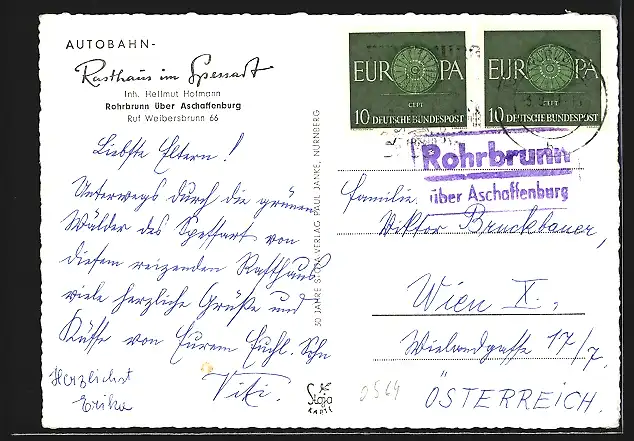 AUTOBAHN-
Rasthaus im Spessart
Inh. Hellmut Hofmann
Rohrbrunn über Aschaffenburg
Ruf Weibersbrunn 66
Liebste Eltern!
Unterwegs durch die grünen
Wälder des Spessart von
diesem reizenden Rasthaus
viele herzliche Grüße und
Küsse von Eurem Sohn
Viki.
Herzlichst
Erika
30 JAHRE STOJA VERLAG PAUL JANKE, NÜRNBERG
Stoja
KARTE
EUROPA
CEPT
10 DEUTSCHE BUNDESPOST
EUROPA
CEPT
10 DEUTSCHE BUNDESPOST
Rohrbrunn
über Aschaffenburg
Familie
Viktor Bruckbauer,
Wien X.,
Wielandgasse 17/7.
ÖSTERREICH.
0564